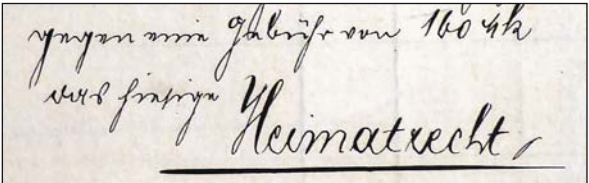 gegen eine Gebühr von 160 Mk
das hiesige
Heimatrecht